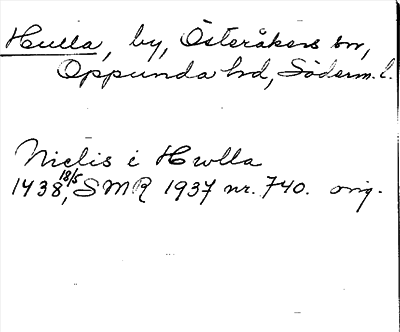 Hulla, by, Österåkers sn,
Oppunda hd, Söderm. l.
Niclis i Hwlla
1438 18/5, SMR 1937 nr. 740. orig.